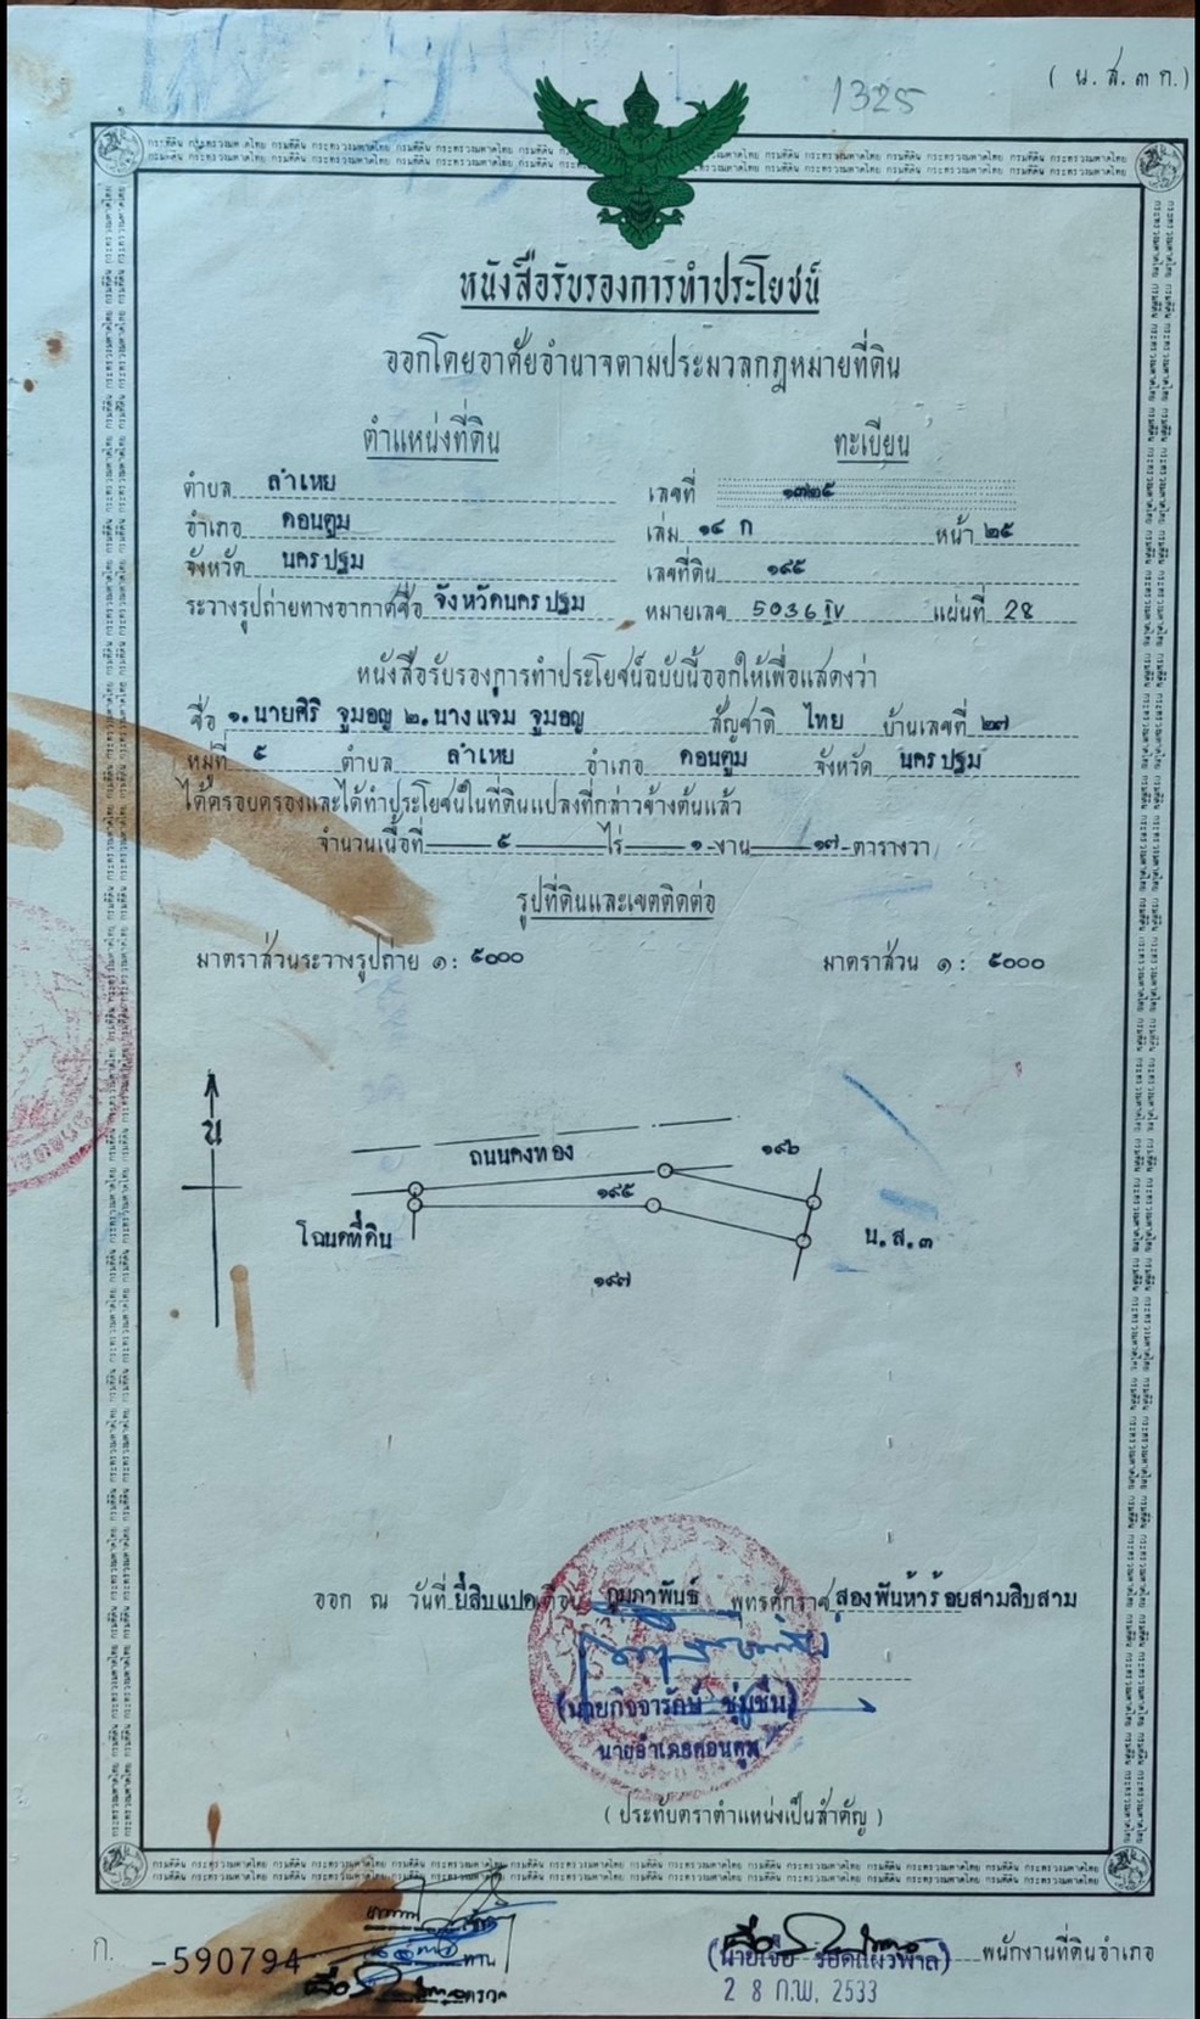 ( น.ส.๓ ก.)
1325
หนังสือรับรองการทำประโยชน์
ออกโดยอาศัยอำนาจตามประมวลกฎหมายที่ดิน
ตำแหน่งที่ดิน ทะเบียน
ตำบล ลำเหย เลขที่ ๑๓๒๕
อำเภอ ดอนตูม เล่ม ๑๔ ก หน้า ๒๕
จังหวัด นครปฐม เลขที่ดิน ๑๙๕
ระวางรูปถ่ายทางอากาศชื่อ จังหวัดนครปฐม หมายเลข 5036 IV แผ่นที่ 28
หนังสือรับรองการทำประโยชน์ฉบับนี้ออกให้เพื่อแสดงว่า
ชื่อ ๑.นายศิริ จูมอญ ๒.นางแจ่ม จูมอญ สัญชาติ ไทย บ้านเลขที่ ๒๗
หมู่ที่ ๕ ตำบล ลำเหย อำเภอ ดอนตูม จังหวัด นครปฐม
ได้ครอบครองและได้ทำประโยชน์ในที่ดินแปลงที่กล่าวข้างต้นแล้ว
จำนวนเนื้อที่ ๕ ไร่ ๑ งาน ๑๗ ตารางวา
รูปที่ดินและเขตติดต่อ
มาตราส่วนระวางรูปถ่าย ๑ : ๕๐๐๐ มาตราส่วน ๑ : ๕๐๐๐
น
ถนนคงทอง ๑๙๖
๑๙๕
โฉนดที่ดิน น.ส.๓
๑๙๗
ออก ณ วันที่ ยี่สิบแปด เดือน กุมภาพันธ์ พุทธศักราช สองพันห้าร้อยสามสิบสาม
(นายกิจจารักษ์ ชุ่มชื่น)
นายอำเภอดอนตูม
( ประทับตราตำแหน่งเป็นสำคัญ )
ก. -590794 ทาน
ตรวจ
พนักงานที่ดินอำเภอ
2 8 ก.พ. 2533